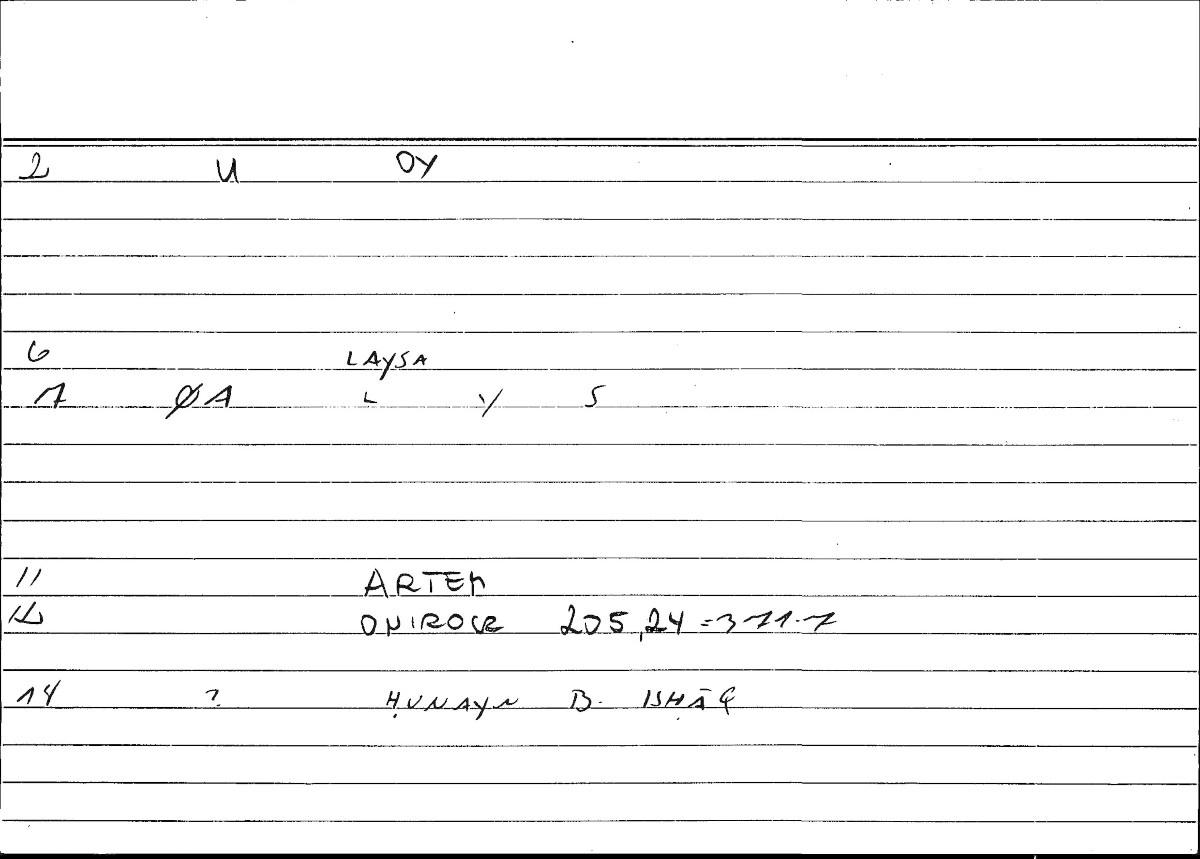 2 U OY
6 LAYSA
7 ØA L Y S
11 ARTEM
12 ONIROCR 205,24=371.7
14 ? ḤUNAYN B. ISḤĀQ